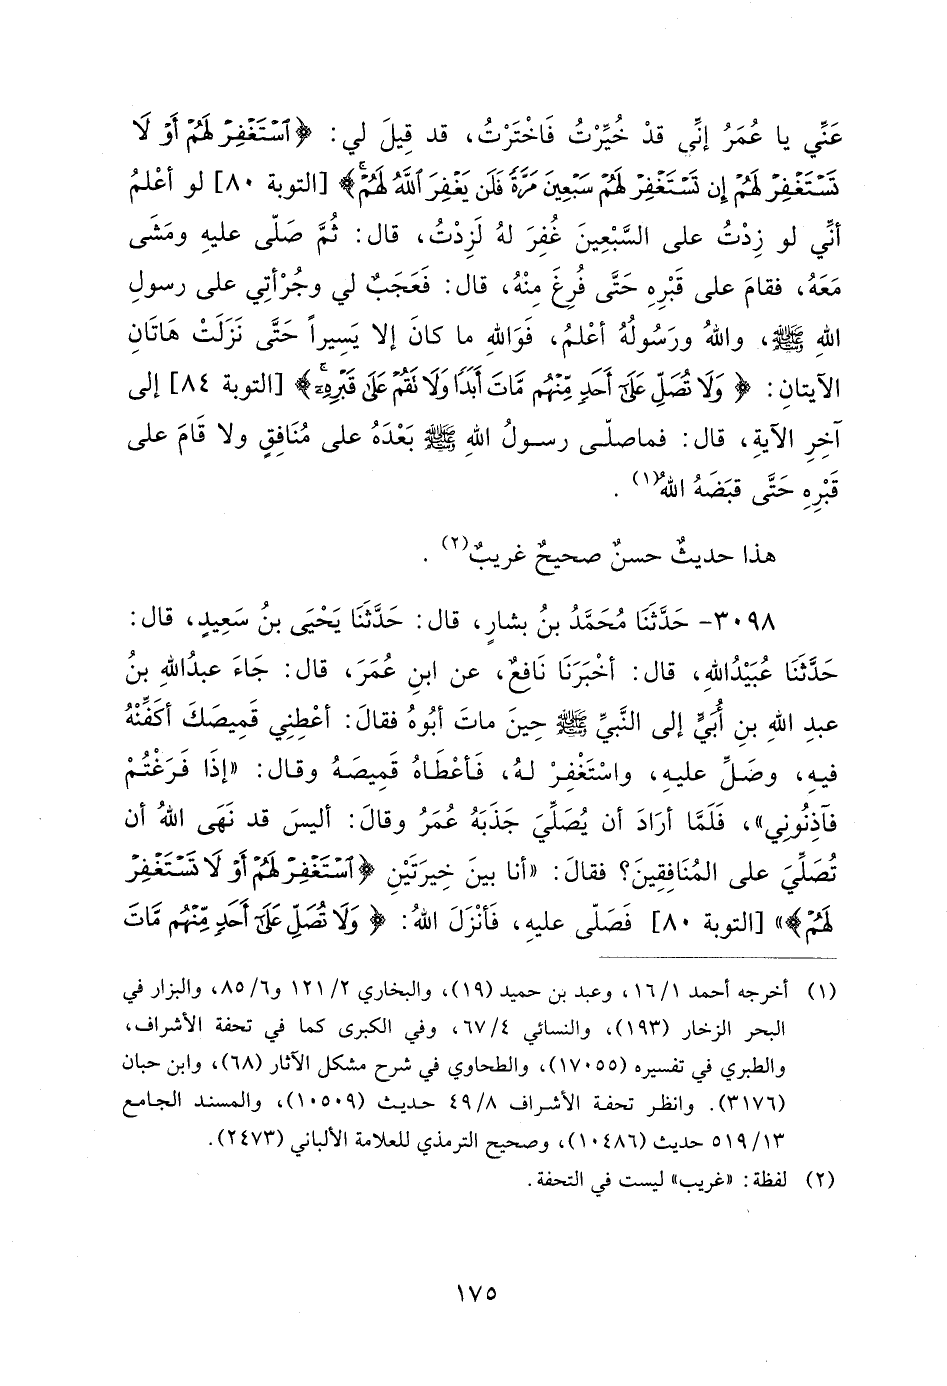 عَنِّي يا عُمَرُ إنِّي قدْ خُيِّرْتُ فَاخْتَرْتُ، قد قِيلَ لي: ﴿ ٱسْتَغْفِرْ لَهُمْ أَوْ لَا
تَسْتَغْفِرْ لَهُمْ إِن تَسْتَغْفِرْ لَهُمْ سَبْعِينَ مَرَّةً فَلَن يَغْفِرَ ٱللَّهُ لَهُمْ ۚ﴾ [التوبة ٨٠] لو أعْلمُ
أنِّي لو زِدْتُ على السَّبْعِينَ غُفِرَ لهُ لَزِدْتُ، قال: ثُمَّ صَلّى عليهِ ومَشَى
مَعَهُ، فقامَ على قَبْرِهِ حَتَّى فُرِغَ مِنْهُ، قال: فَعَجَبٌ لي وجُرْأتِي على رسولِ
اللهِ ﷺ، واللهُ ورَسُولُهُ أعْلمُ، فَوَاللهِ ما كانَ إلا يَسِيراً حَتَّى نَزَلَتْ هَاتَانِ
الآيتانِ: ﴿ وَلَا تُصَلِّ عَلَىٰٓ أَحَدٍ مِّنْهُم مَّاتَ أَبَدًا وَلَا تَقُمْ عَلَىٰ قَبْرِهِۦٓ ۚ﴾ [التوبة ٨٤] إلى
آخِرِ الآيةِ، قال: فماصلّى رسولُ اللهِ ﷺ بَعْدَهُ على مُنَافِقٍ ولا قَامَ على
قَبْرِهِ حَتَّى قبَضَهُ اللهُ(١) .
هذا حديثٌ حسنٌ صحيحٌ غريبٌ(٢) .
٣٠٩٨- حَدَّثَنَا مُحَمَّدُ بنُ بشارٍ، قال: حَدَّثَنَا يَحْيَى بنُ سَعِيدٍ، قال:
حَدَّثَنَا عُبَيْدُاللهِ، قال: أخْبَرَنَا نَافِعٌ، عن ابنِ عُمَرَ، قال: جَاءَ عبدُاللهِ بنُ
عبدِ اللهِ بنِ أُبَيٍّ إلى النَّبيِّ ﷺ حِينَ ماتَ أبُوهُ فقالَ: أعْطِنِي قَمِيصَكَ أكَفِّنْهُ
فيهِ، وصَلِّ عليهِ، واسْتَغْفِرْ لهُ، فَأعْطَاهُ قَمِيصَهُ وقال: «إذَا فَرَغْتُمْ
فآذِنُونِي»، فَلَمَّا أرَادَ أن يُصَلِّيَ جَذَبَهُ عُمَرُ وقالَ: أليسَ قد نَهَى اللهُ أن
تُصَلِّيَ على المُنَافِقِينَ؟ فقالَ: «أنا بينَ خِيرَتَيْنِ ﴿ٱسْتَغْفِرْ لَهُمْ أَوْ لَا تَسْتَغْفِرْ
لَهُمْ﴾» [التوبة ٨٠] فَصَلّى عليهِ، فَأنْزَلَ اللهُ: ﴿ وَلَا تُصَلِّ عَلَىٰٓ أَحَدٍ مِّنْهُم مَّاتَ
(١) أخرجه أحمد ١/ ١٦، وعبد بن حميد (١٩)، والبخاري ٢/ ١٢١ و٦/ ٨٥، والبزار في
البحر الزخار (١٩٣)، والنسائي ٤/ ٦٧، وفي الكبرى كما في تحفة الأشراف،
والطبري في تفسيره (١٧٠٥٥)، والطحاوي في شرح مشكل الآثار (٦٨)، وابن حبان
(٣١٧٦). وانظر تحفة الأشراف ٨/ ٤٩ حديث (١٠٥٠٩)، والمسند الجامع
١٣/ ٥١٩ حديث (١٠٤٨٦)، وصحيح الترمذي للعلامة الألباني (٢٤٧٣).
(٢) لفظة: «غريب» ليست في التحفة.
١٧٥